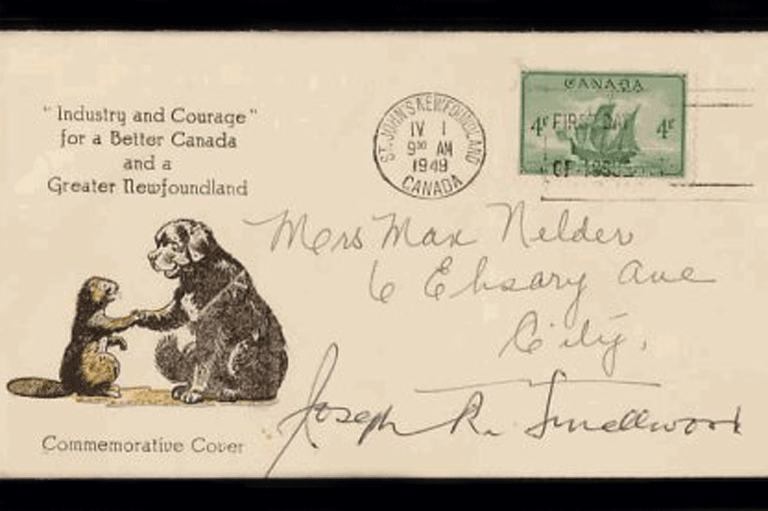 "Industry and Courage"
for a Better Canada
and a
Greater Newfoundland
ST. JOHN'S NEWFOUNDLAND
IV 1
9 00 AM
1949
CANADA
CANADA
4c FIRST DAY 4c
OF ISSUE
Mrs Max Nelder
6 Ebsary Ave
City.
Joseph R. Smallwood
Commemorative Cover